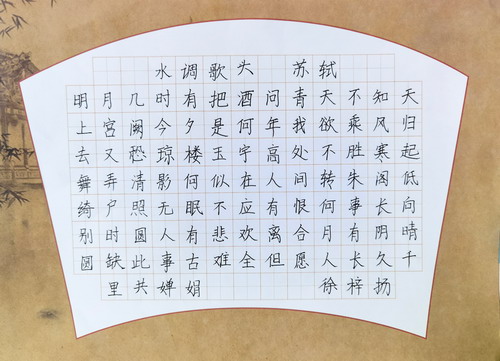 水调歌头 苏轼
明月几时有把酒问青天不知天
上宫阙今夕是何年我欲乘风归
去又恐琼楼玉宇高处不胜寒起
舞弄清影何似在人间转朱阁低
绮户照无眠不应有恨何事长向
别时圆人有悲欢离合月有阴晴
圆缺此事古难全但愿人长久千
里共婵娟 徐梓扬